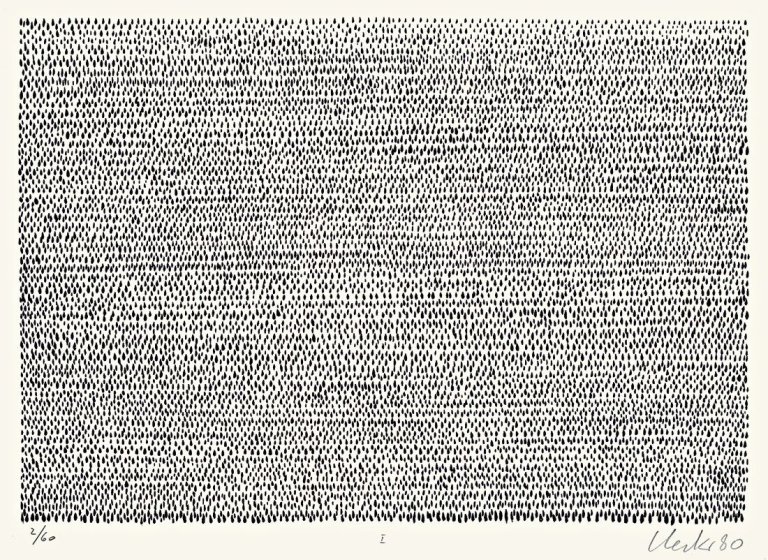 2/60 I Uecker 80